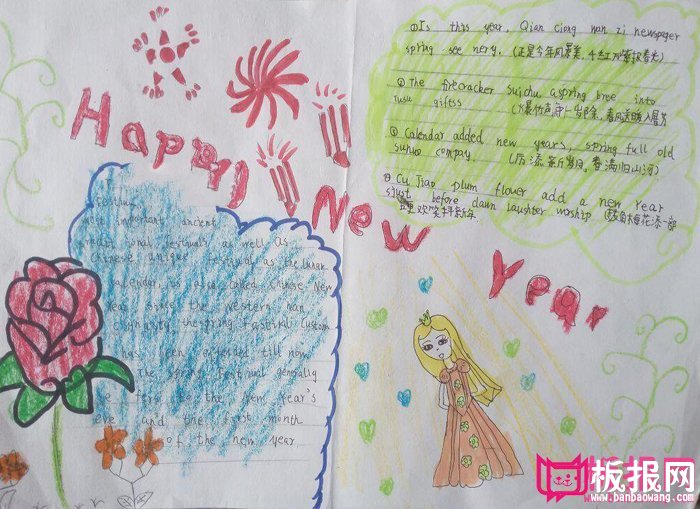 Happy New Year
①Is this year, Qian ciong wan zi newspaper
spring see nery. (正是今年风景美,千红万紫报春光)
②The firecracker Suichu aspring bree into
tusu giftss (爆竹声中一岁除,春风送暖入屠苏
③Calendar added new years, spring full old
suhuo compay. (历添新岁月,春满旧山河)
④Cu Jiao plum flower add a new Year
just before dawn laughter worship (鼓角梅花添一部
五更欢笑拜新年.
most important ancient
traditional festivals as well as
Chinese unique festival as the lunar
calendar, is also called Chinese New
Year since the western Han
till now
the spring Festival generally
refers to the New Year's
eve and the first month
of the new year
板报网
www.banbaowang.com